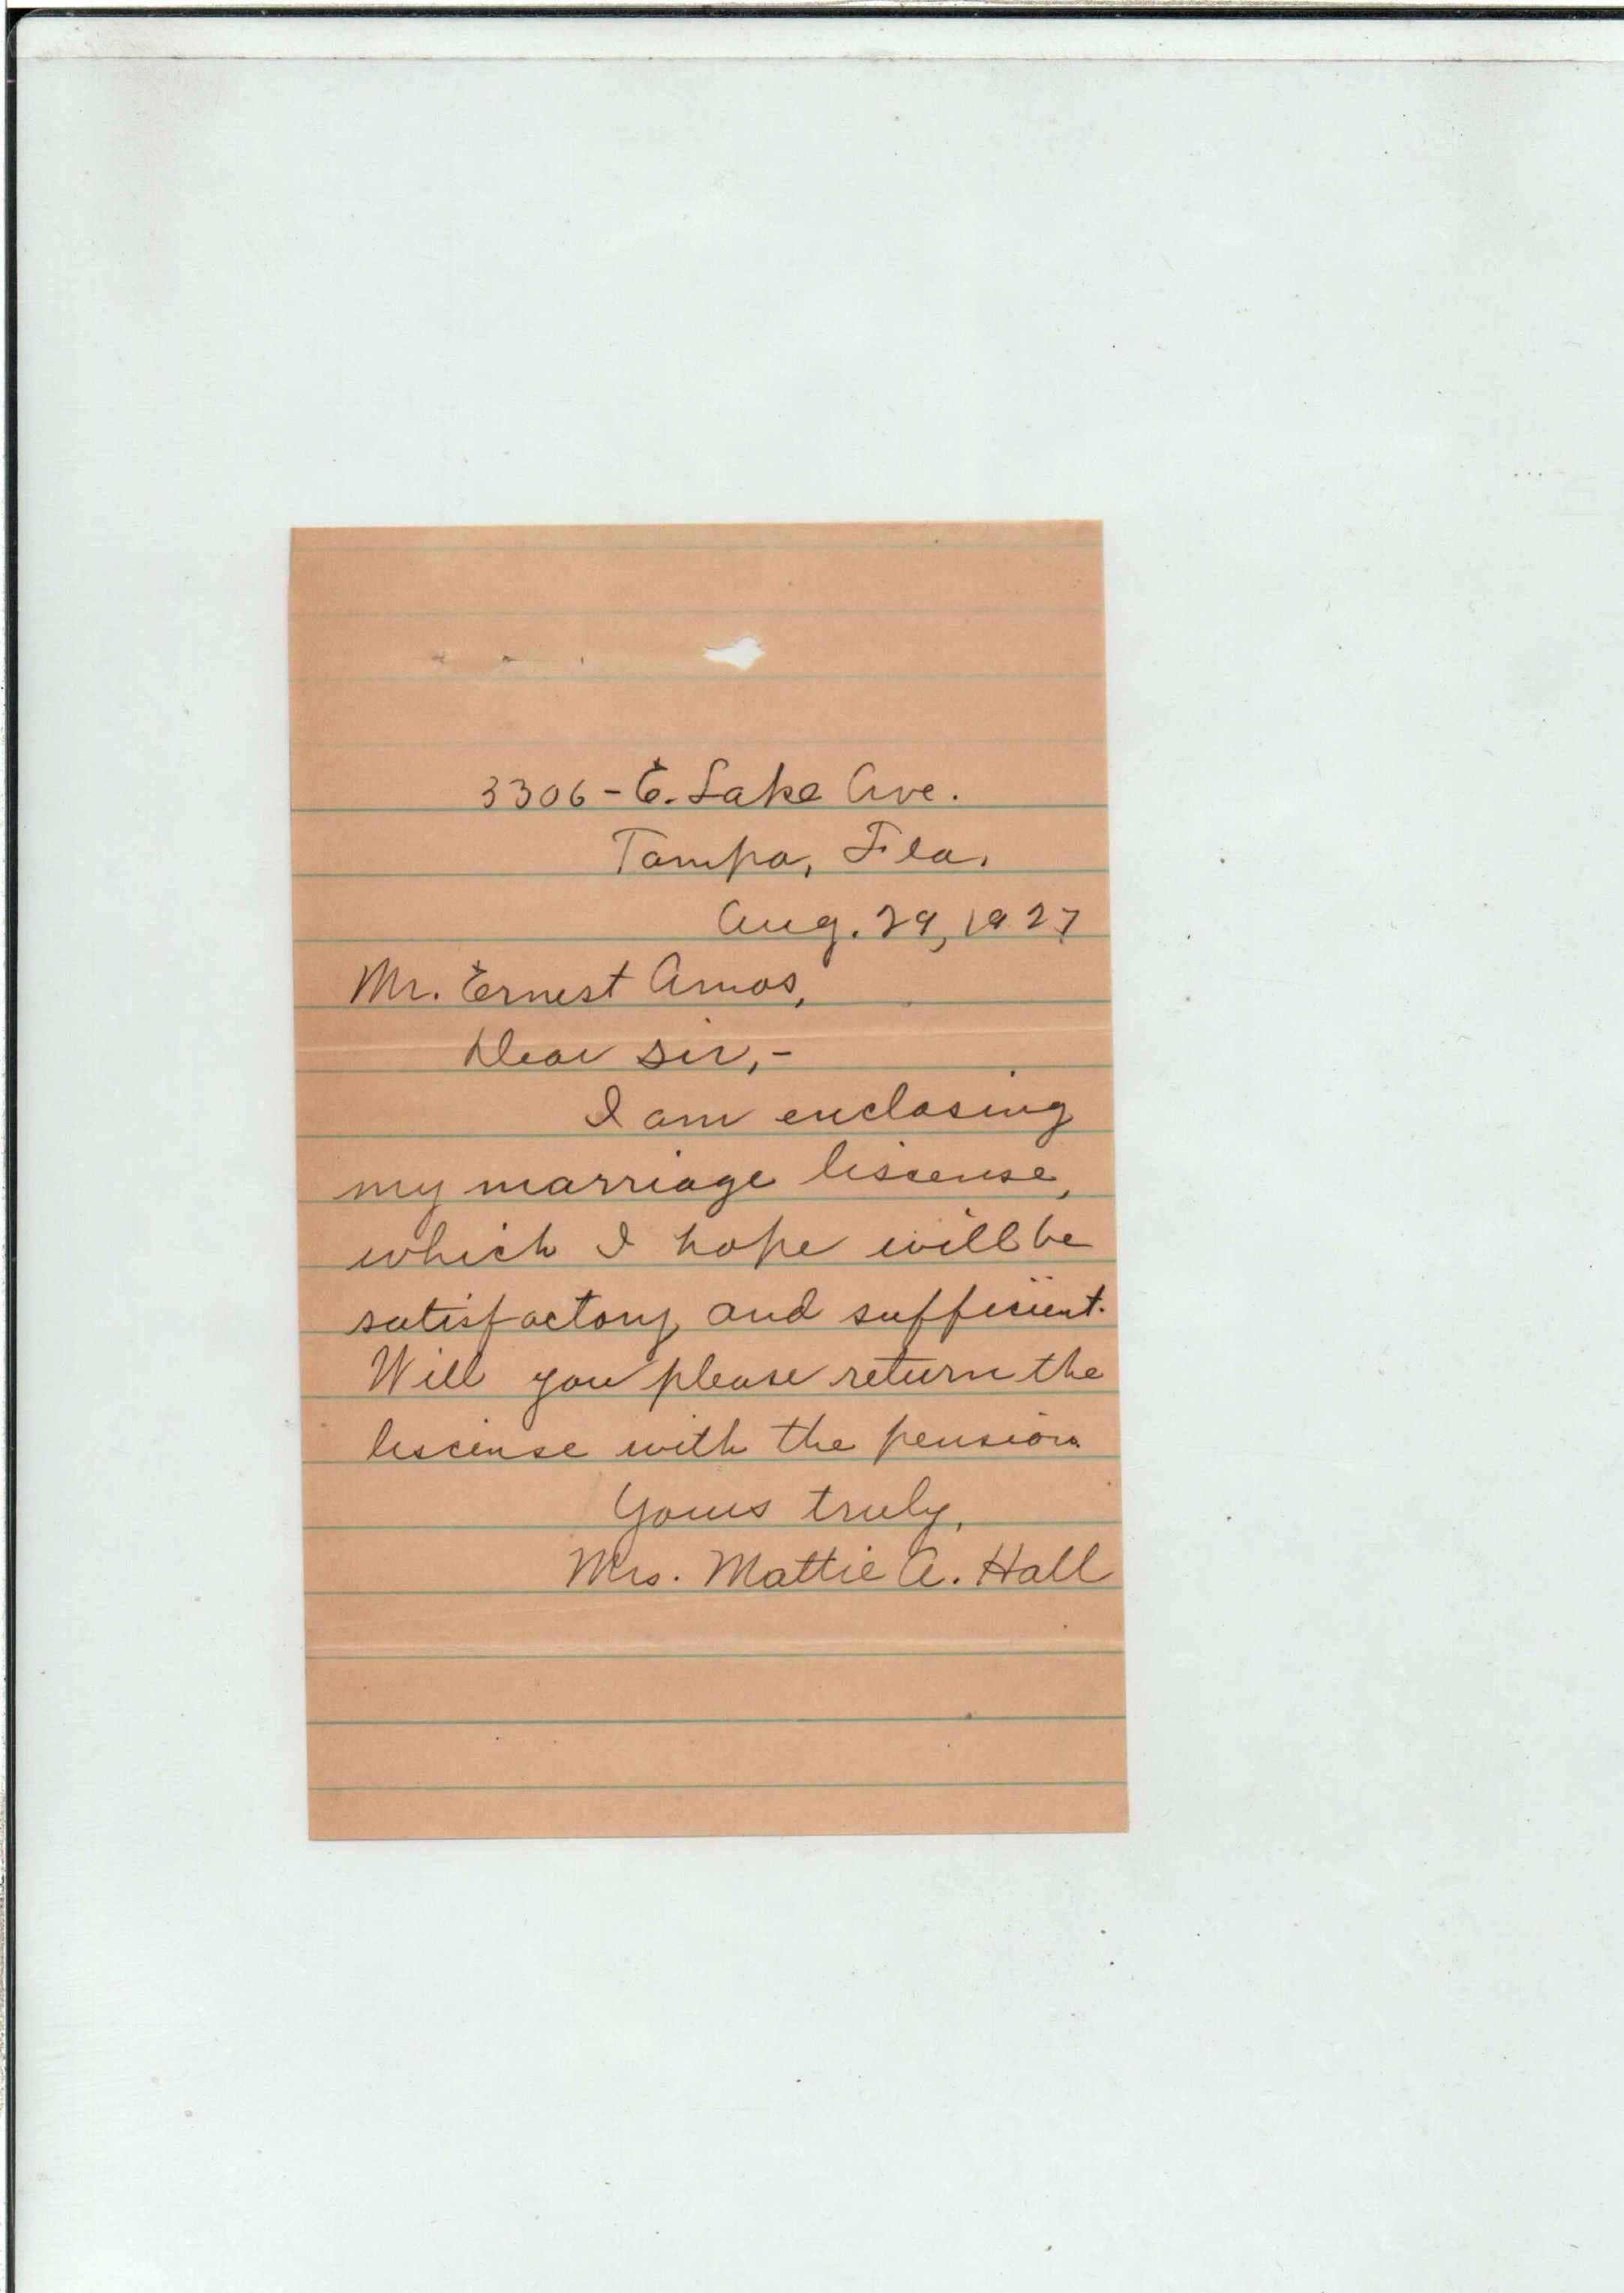 3306 - E. Lake Ave.
Tampa, Fla.
Aug. 29, 1927
Mr. Ernest Amos,
Dear sir, -
I am enclosing
my marriage liscense,
which I hope will be
satisfactory and sufficient.
Will you please return the
liscense with the pension.
Yours truly,
Mrs. Mattie A. Hall